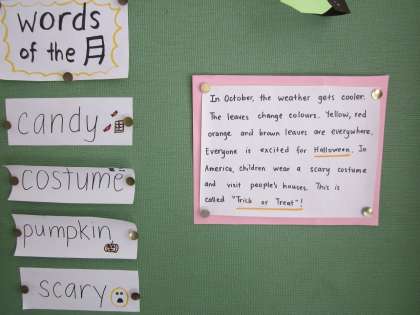 words
of the 月
candy
costume
pumpkin
scary
In October, the weather gets cooler.
The leaves change colours. Yellow, red
orange and brown leaves are everywhere.
Everyone is excited for Halloween. In
America, children wear a scary costume
and visit people's houses. This is
called "Trick or Treat"!